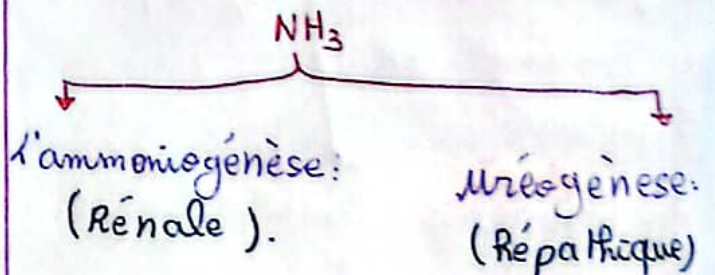 NH3
L'ammoniogénèse:
(Rénale).
Uréogènese:
(Répathique)